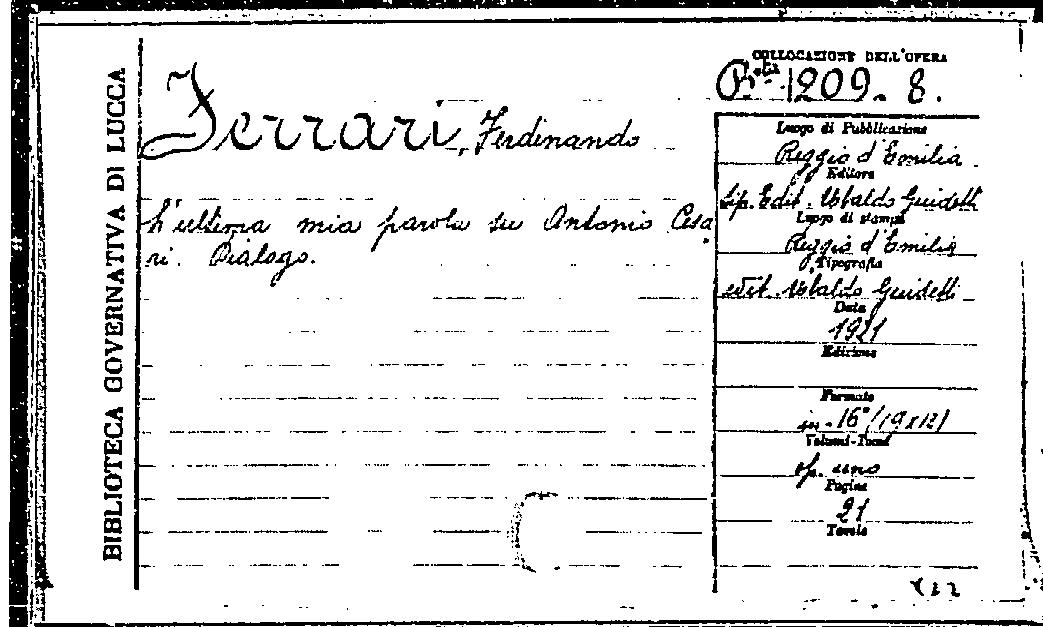 BIBLIOTECA GOVERNATIVA DI LUCCA
Ferrari, Ferdinando
L'ultima mia parola su Antonio Cesa
ri. Dialogo.
COLLOCAZIONE DELL'OPERA
1209. 8.
Luogo di Pubblicazione
Reggio d'Emilia
Editore
tip. Edit. Ubaldo Guidetti
Luogo di stampa
Reggio d'Emilia
Tipografia
edit. Ubaldo Guidetti
Data
1921
Edizione
Formato
in-16° (19x12)
Volumi-Tomi
op. uno
Pagine
21
Tavole